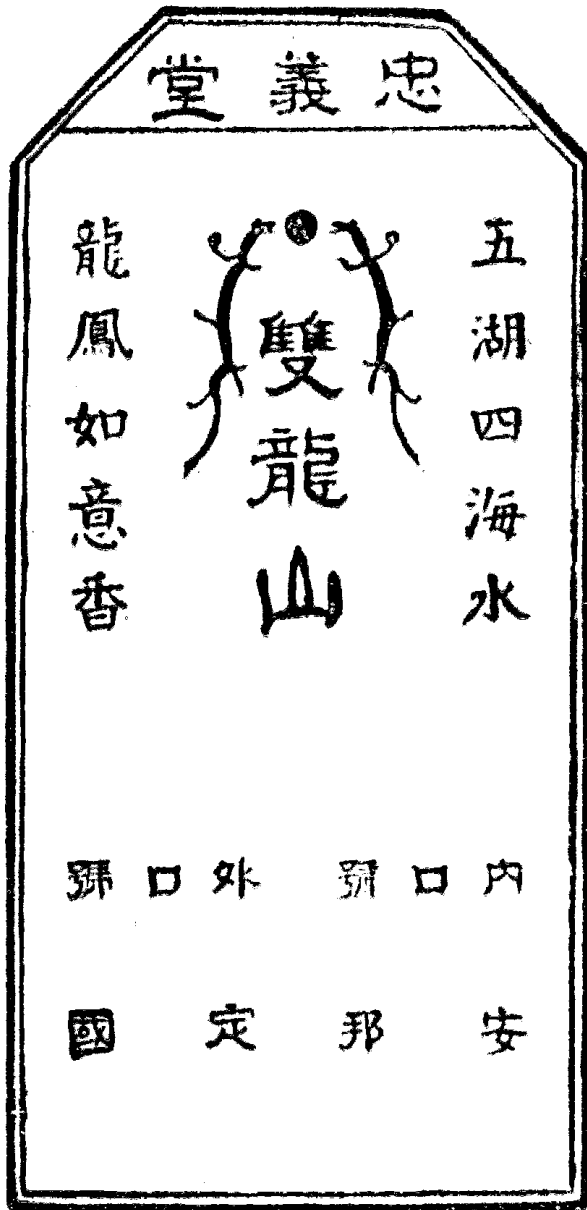 忠義堂
五湖四海水
雙龍山
龍鳳如意香
內口號 外口號
安邦定國